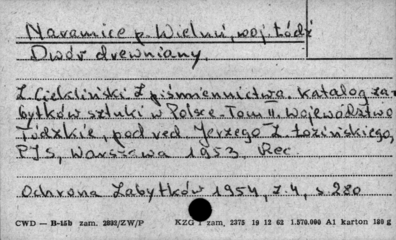 Naramice p. Wieluń, woj. Łódź
Dwór drewniany.
Z. Ciekliński Z piśmiennictwa. Katalog za-
bytków sztuki w Polsce. Tom II. Województwo
Łódzkie, pod red Jerzego Z. Łozińskiego,
PIS, Warszawa 1953. Rec
Ochrona Zabytków 1954, z. 4, s 280
CWD — B-15b zam. 2892/ZW/P KZG 1 zam. 2375 19 12 62 1.570.000 A1 karton 180 g